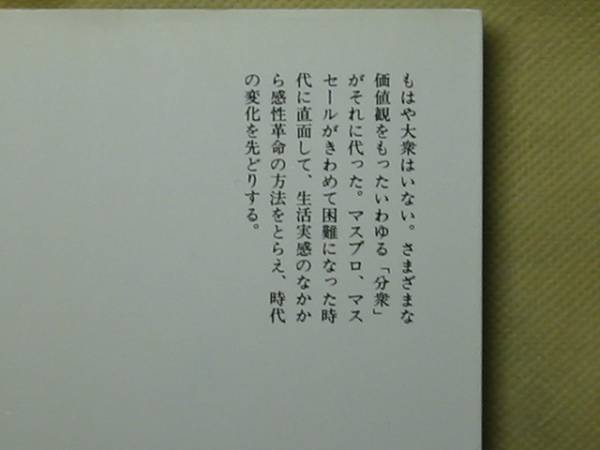 もはや大衆はいない。さまざまな
価値観をもったいわゆる「分衆」
がそれに代った。マスプロ、マス
セールがきわめて困難になった時
代に直面して、生活実感のなかか
ら感性革命の方法をとらえ、時代
の変化を先どりする。